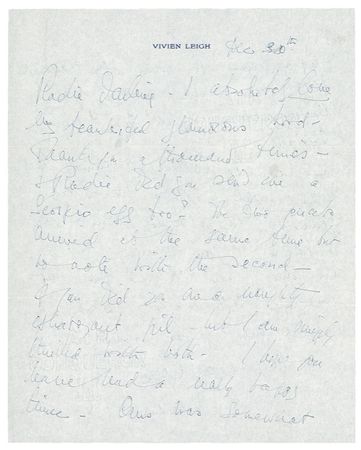 VIVIEN LEIGH
Dec 30th
Radie Darling - I absolutely love
my beautiful glamorous
thank you a thousand times -
Radie did you send me a
egg too? The two presents
arrived at the same time but
no note with the second -
If you did you are a naughty
extravagant girl - but I am simply
thrilled with both - I hope you
have had a really happy
time - Ours was somewhat